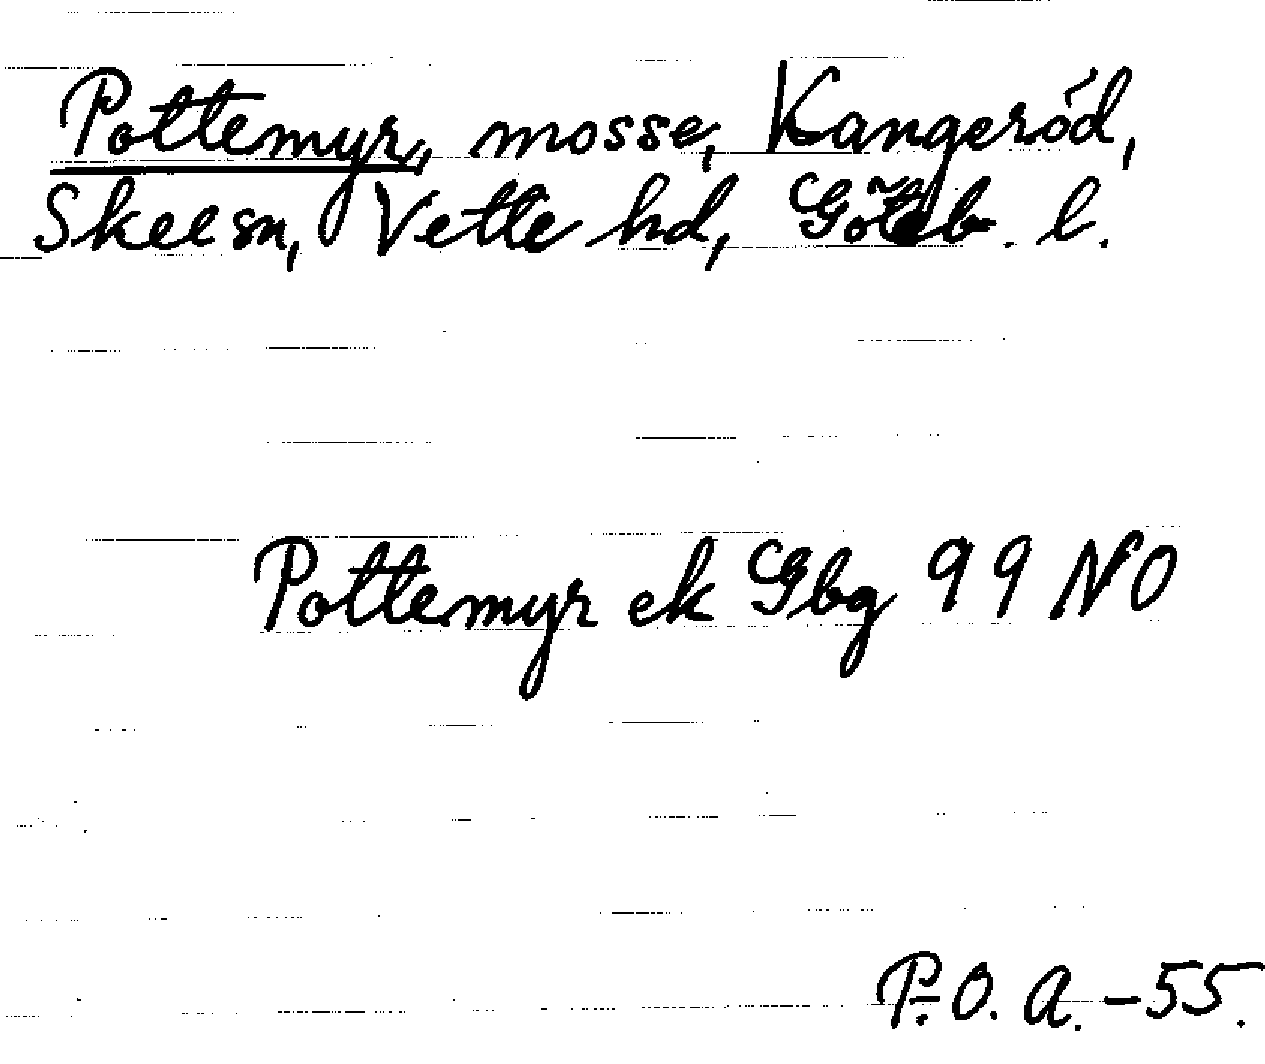 Pottemyr, mosse, Kangeröd,
Skee sn, Vette hd, Göteb. l.
Pottemyr ek Gbg 99 NO
P.O.A.-55.